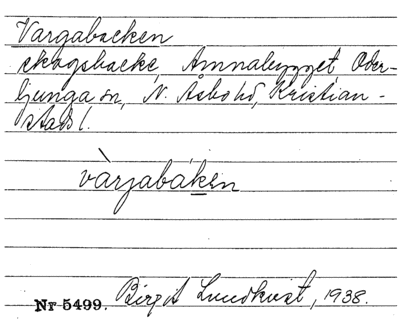 Vargabacken
skogsbacke, Amnabygget, Oder-
ljunga sn, N. Åsbo hd, Kristian-
stads l.
vàrjabáken
Nr 5499. Birgit Lundkvist, 1938.